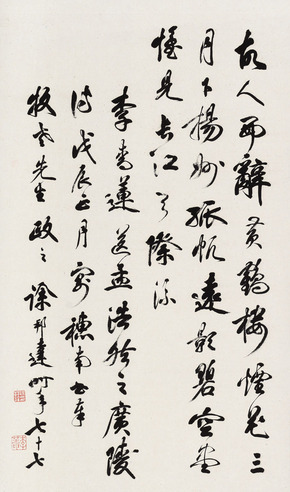 故人西辭黃鶴樓煙花三
月下揚州孤帆遠影碧空盡
惟見長江天際流
李青蓮送孟浩然之廣陵
詩戊辰正月客穗南書奉
先生政之 徐邦達時年七十七